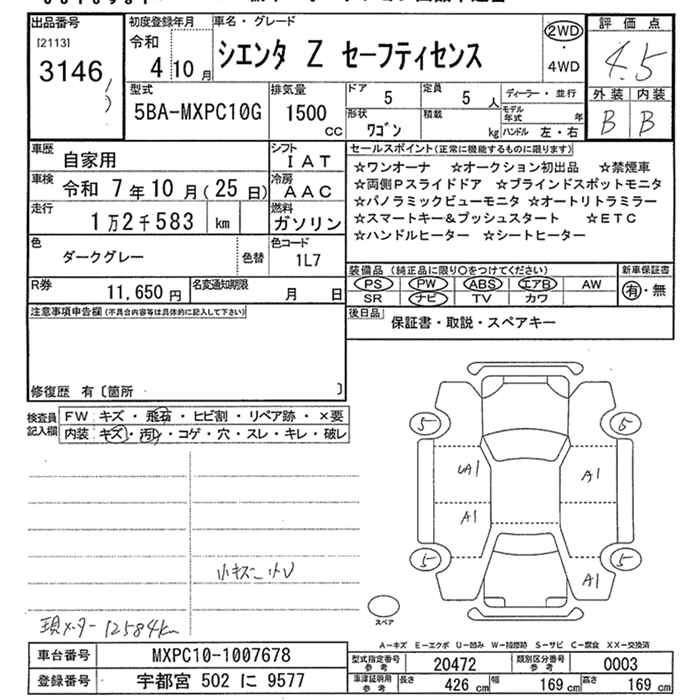 出品番号
[2113]
3146
初度登録年月
令和
4年10月
車名・グレード
シエンタ Z セーフティセンス
2WD
・
4WD
評価点
4.5
外装 内装
B B
型式
5BA-MXPC10G
排気量
1500
cc
ドア
5
定員
5人
形状
ワゴン
積載
kg
ディーラー・並行
モデル
年式 年
ハンドル 左・右
車歴
自家用
シフト
IAT
車検
令和 7年10月(25日)
冷房
AAC
走行
1万2千583 km
燃料
ガソリン
色
ダークグレー
色替
色コード
1L7
R券
11,650円
名変通知期限
月 日
セールスポイント(正常に機能するものに限ります)
☆ワンオーナ ☆オークション初出品 ☆禁煙車
☆両側Pスライドドア ☆ブラインドスポットモニタ
☆パノラミックビューモニタ ☆オートリトラミラー
☆スマートキー&プッシュスタート ☆ETC
☆ハンドルヒーター ☆シートヒーター
装備品(純正品に限り○をつけてください)
PS PW ABS エアB AW
SR ナビ TV カワ
新車保証書
有・無
後日品
保証書・取説・スペアキー
注意事項申告欄(不具合内容等は具体的に記入して下さい)
修復歴 有〔箇所 〕
検査員
記入欄
FW キズ・飛石・ヒビ割・リペア跡・×要
内装 キズ・汚レ・コゲ・穴・スレ・キレ・破レ
小キズ
現メーター 12584km
5 5
UA1 A1
A1
5 5
A1
スペア
A-キズ E-エクボ U-凹み W-補修跡 S-サビ C-腐食 XX-交換済
車台番号
MXPC10-1007678
登録番号
宇都宮 502 に 9577
型式指定番号
参考
20472
類別区分番号
参考
0003
車庫証明用
参考
長さ
426 cm
幅
169 cm
高さ
169 cm